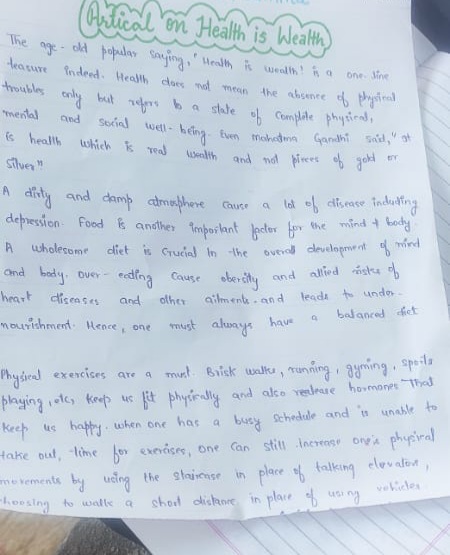 Artical on Health is Wealth
The age-old popular saying, "Health is wealth! is a one-line
teasure indeed. Health does not mean the absence of physical
troubles only but refers to a state of complete physical,
mental and social well-being. Even mahatma Gandhi said," it
is health which is real wealth and not pieces of gold or
silver"
A dirty and damp atmosphere cause a lot of disease including
depression. Food is another important factor for the mind & body.
A wholesome diet is crucial in the overall development of mind
and body. over-eating cause obercity and allied risks of
heart diseases and other ailments. and leads to under-
nourishment. Hence, one must always have a balanced diet
Physical exercises are a must. Brisk walks, running, gyming, spoils
playing, etc, keep us fit physically and also realease hormones That
keep us happy. when one has a busy schedule and is unable to
take out, time for exercises, one can still increase one's physical
movements by using the staircase in place of talking elevator,
choosing to walk a short distance in place of using vehicles